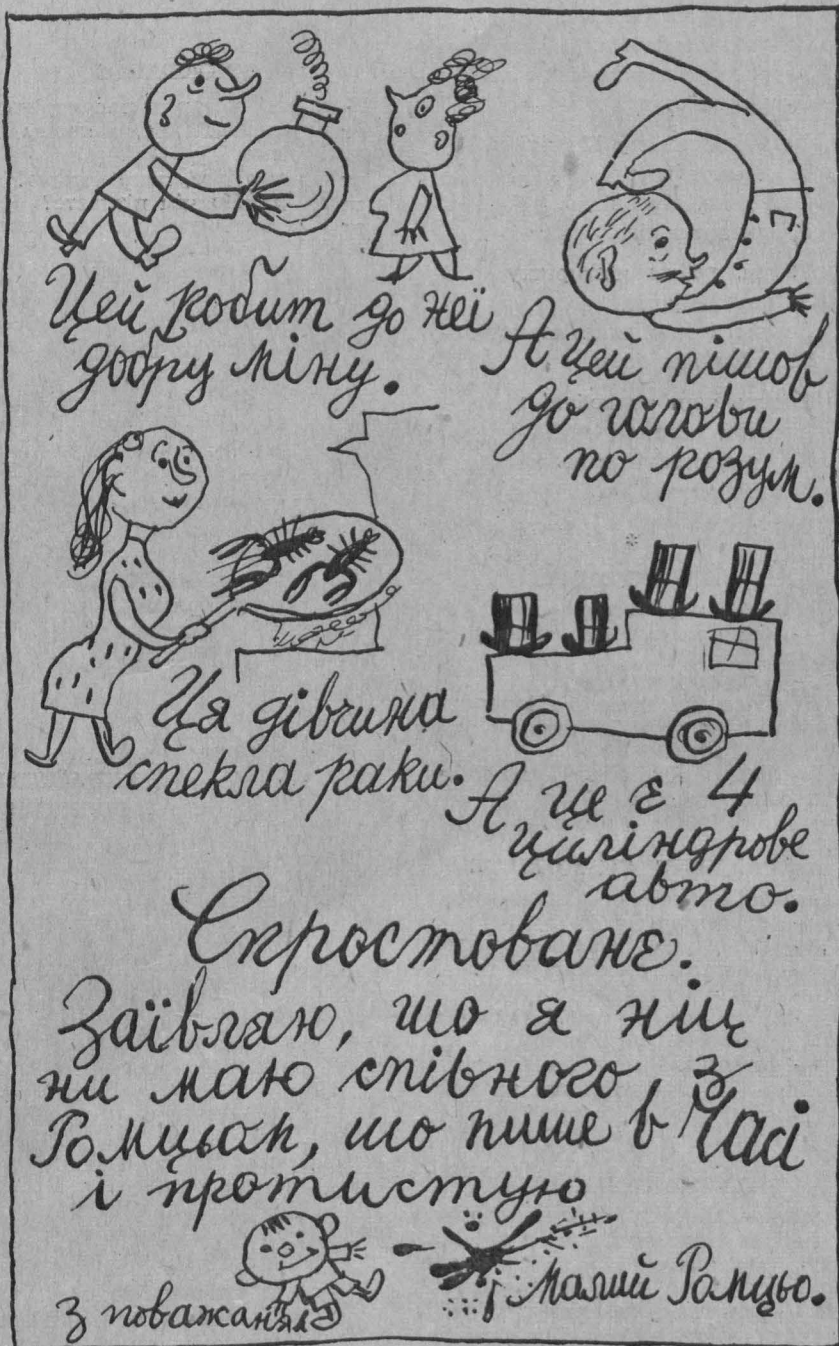 Цей робит до неї
добру міну.
А цей пішов
до голови
по розум.
Ця дівчина
спекла раки.
А це є 4
циліндрове
авто.
Спростованє.
Заївляю, шо я ніц
ни маю співного з
Ромцьом, шо пише в Часі
і протистую
з поважаням
Малий Ромцьо.